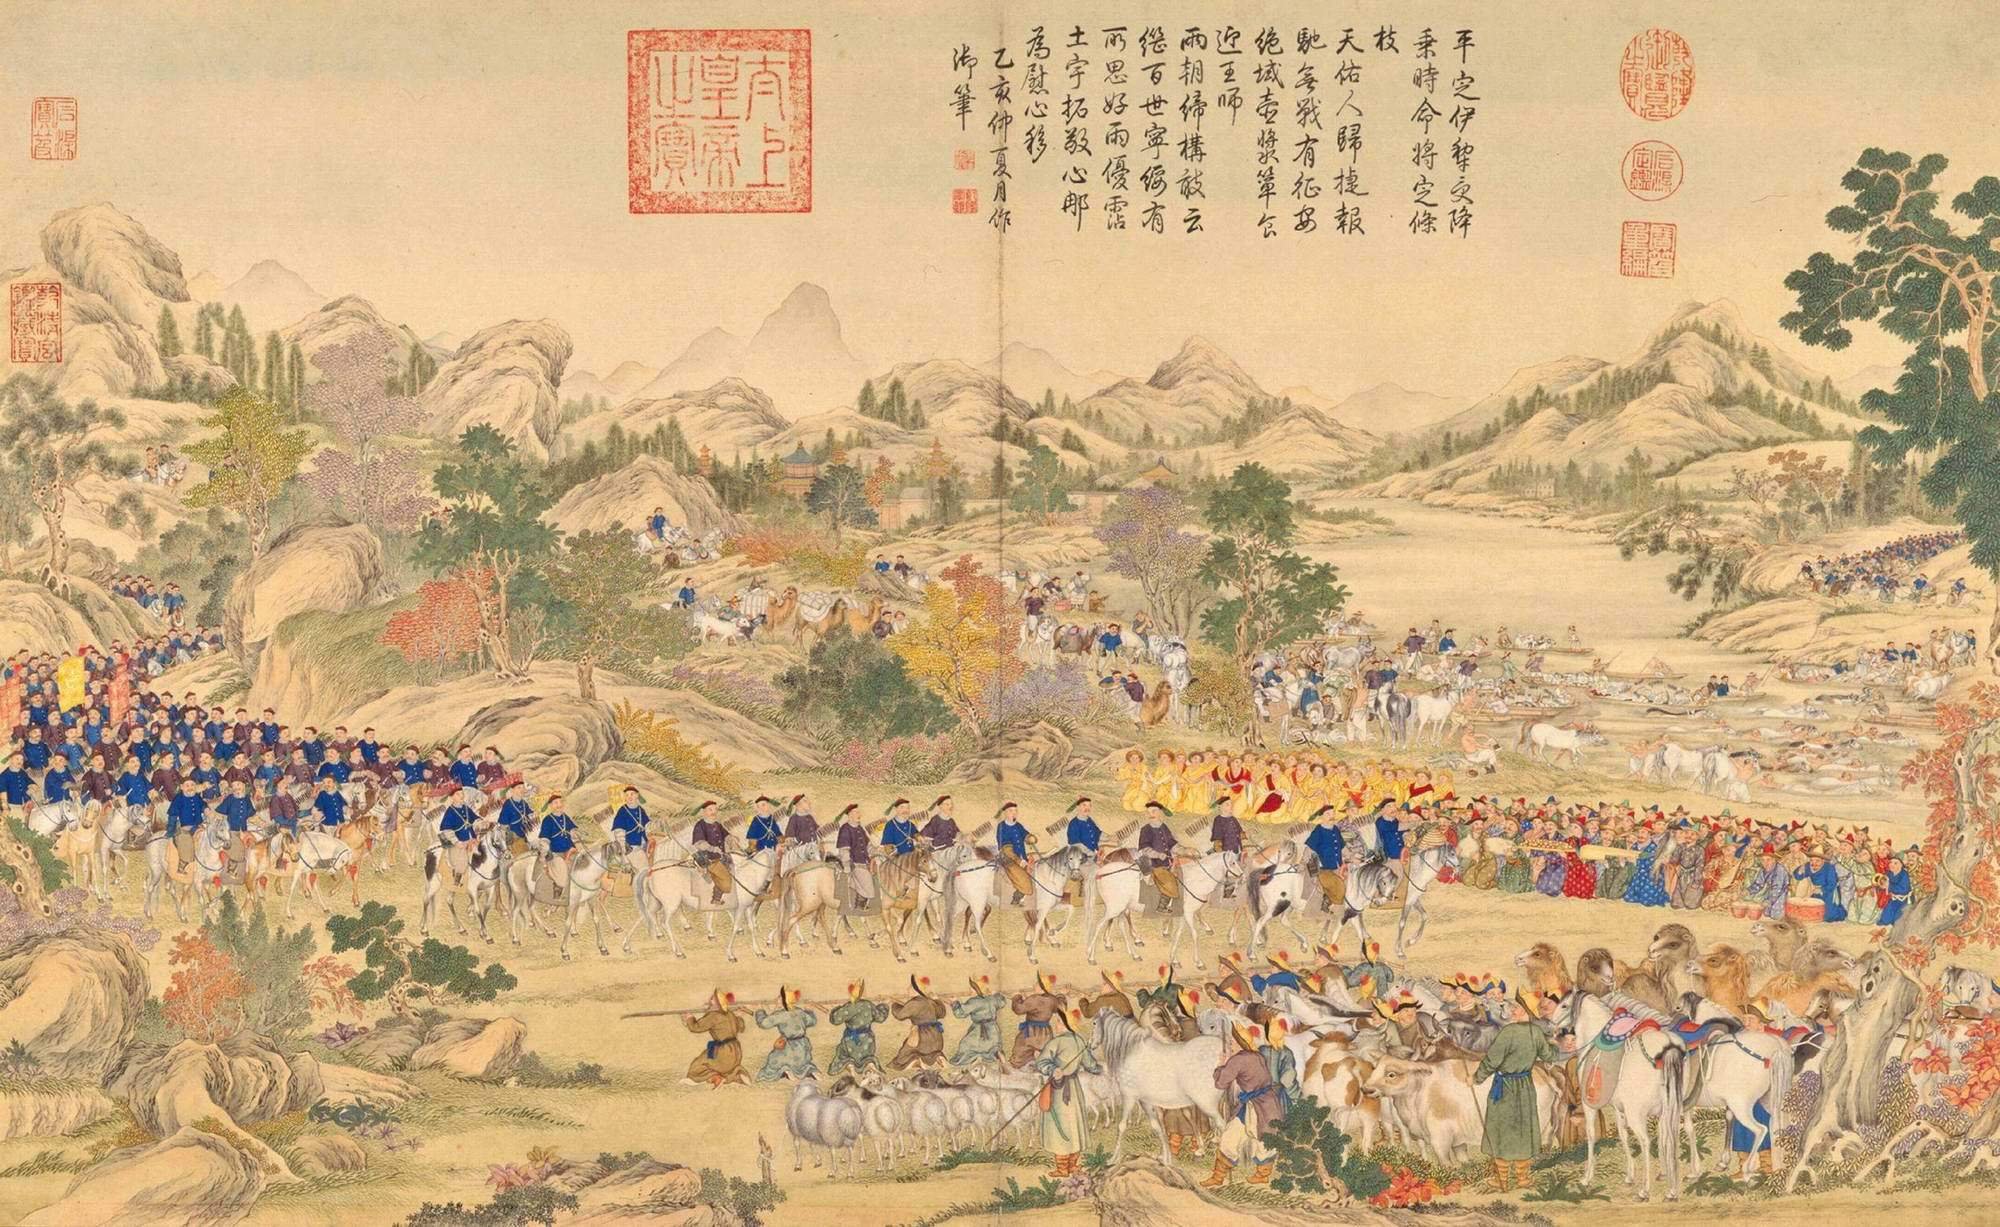 乾隆御覽之寶
石渠定鑑
寶笈重編
平定伊犁受降
乘時命將定條
枝
天佑人歸捷報
馳無戰有征安
絕域壺漿簞食
迎王師
兩朝締構敢云
繼百世寧綏有
所思好雨優霑
土宇拓敬心那
為慰心移
乙亥仲夏月作
御筆
太上皇帝之寶
石渠寶笈
乾清宮鑑藏寶